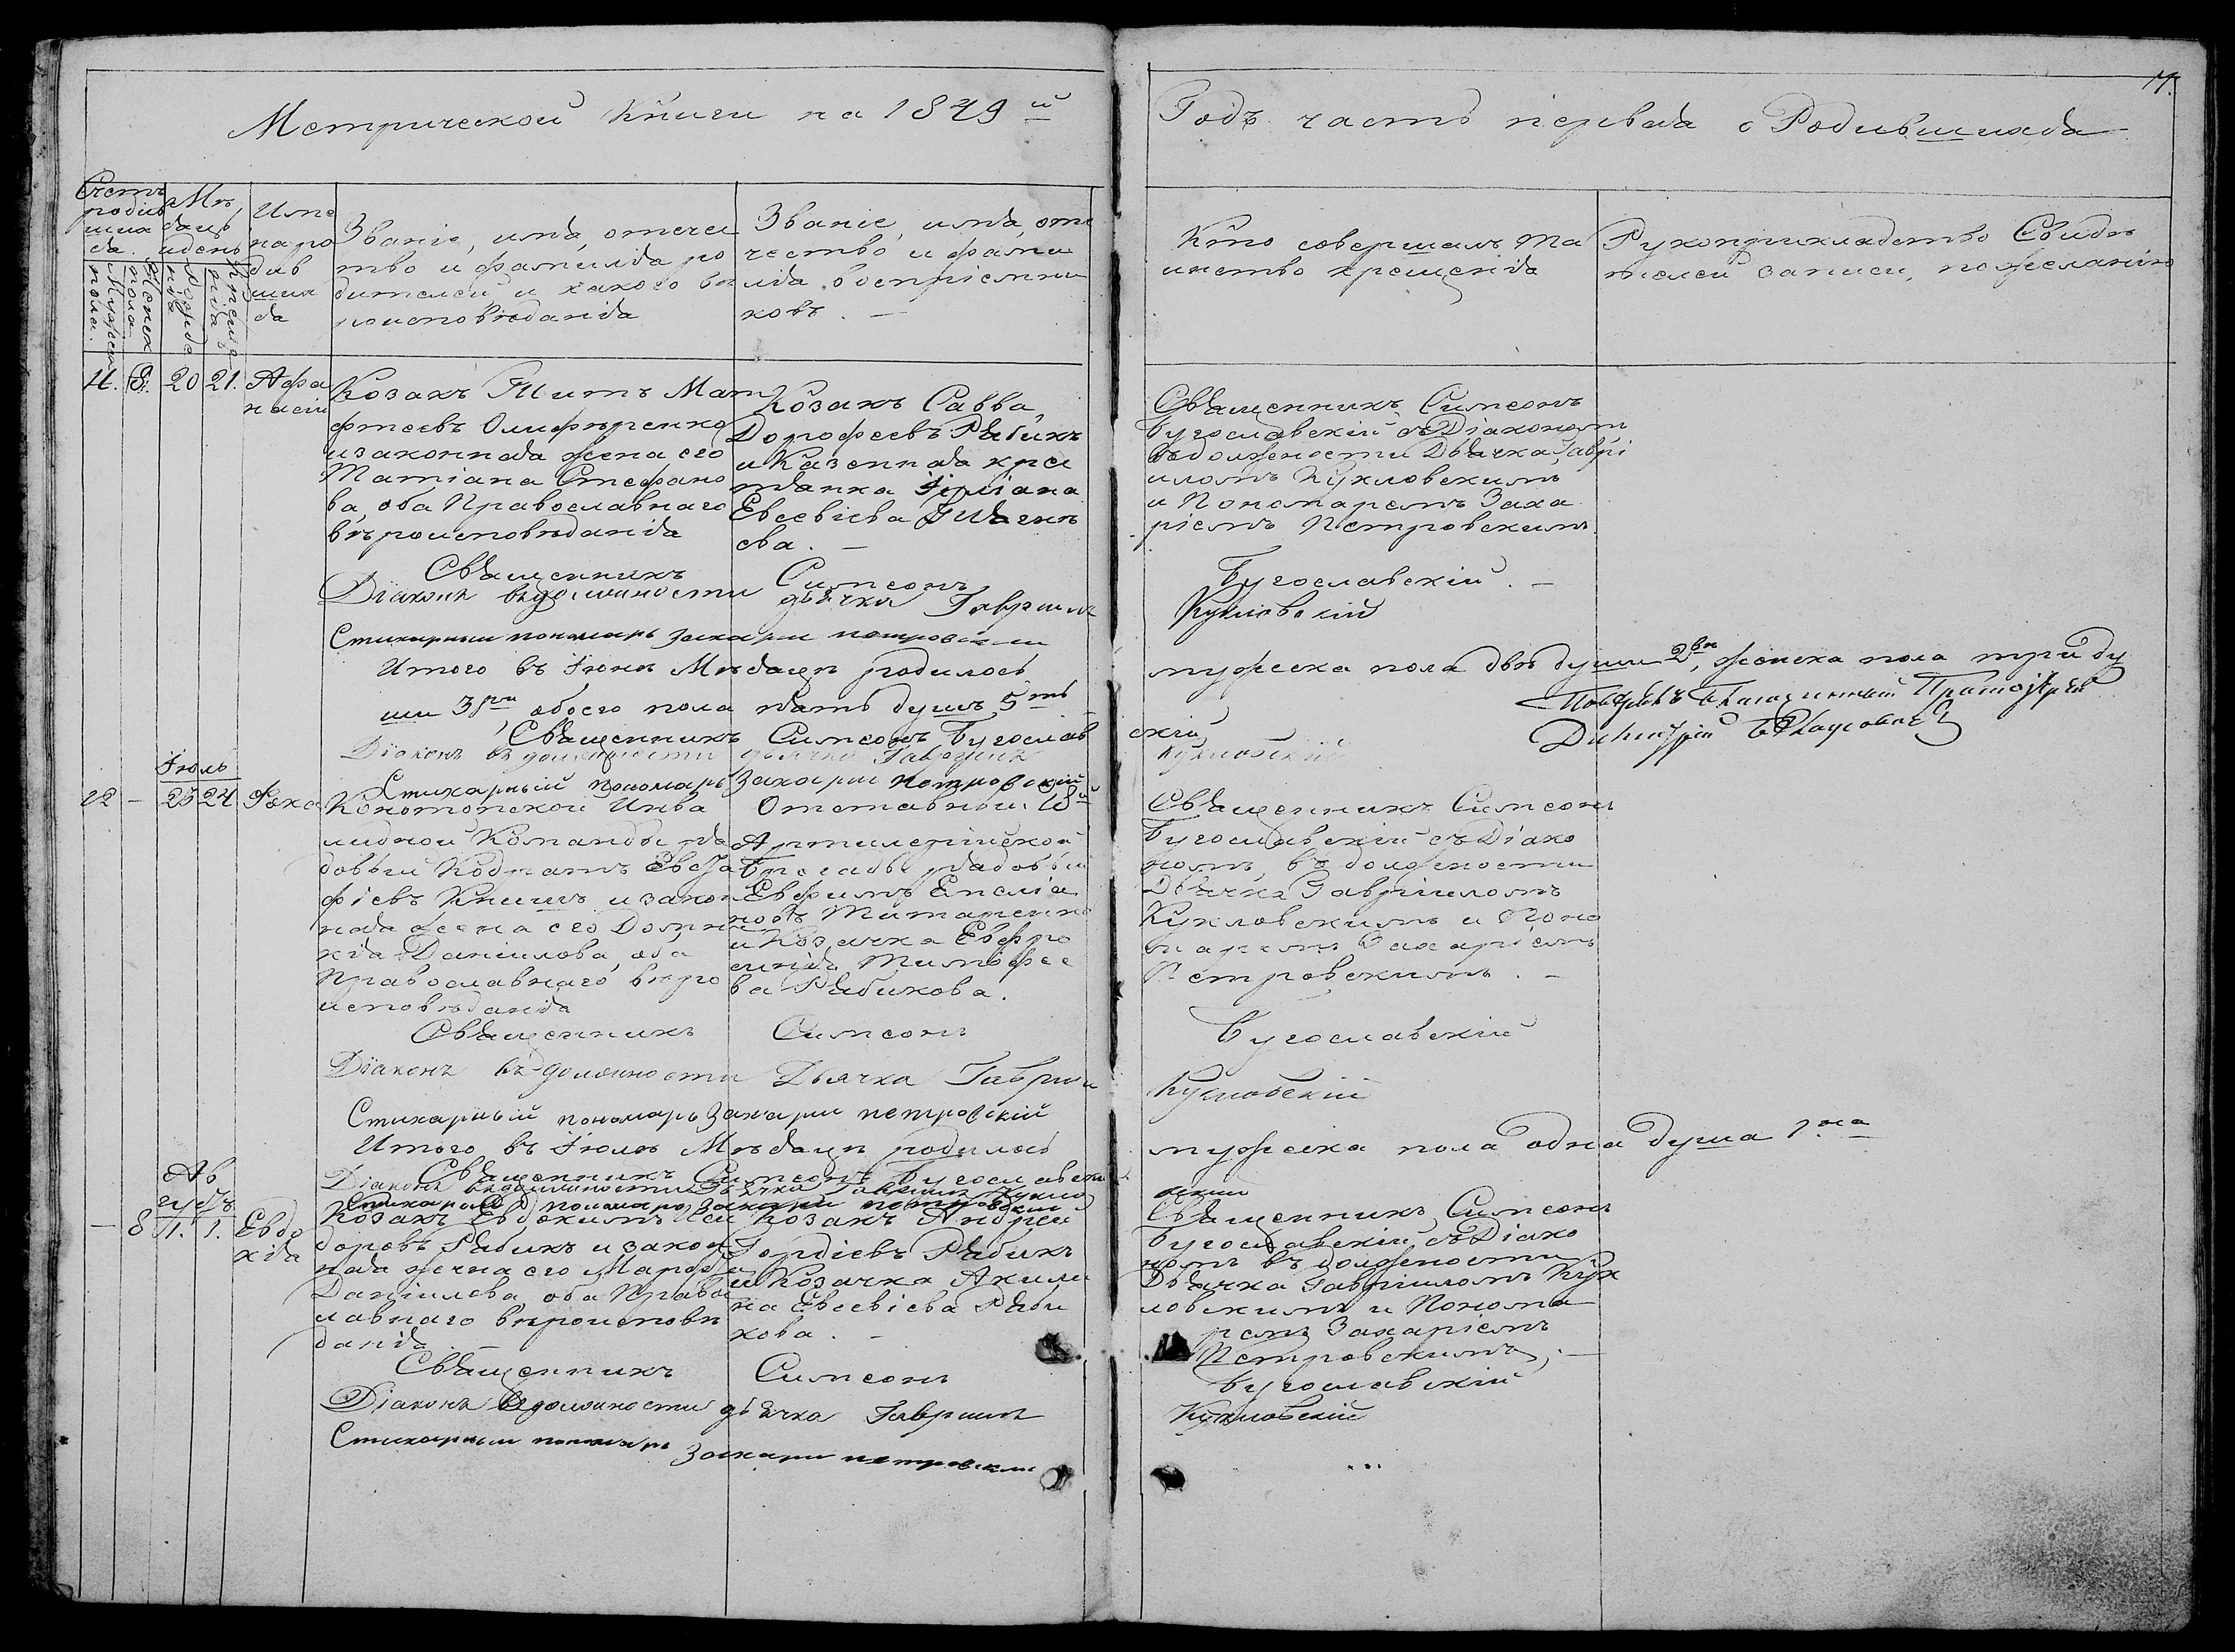 Метрической Книги на 1849й
Годъ часть первая о Родившихся
Счетъ родив шихся.
Мѣсяць и день
Имена ро див шихся
Званіе, имя, отече
ство и фамилія ро
дителей и какого вѣ
роисповѣданія
Званіе, имя, оте
чество и фами
лія воспріемни
ковъ. —
Кто совершалъ та
инство крещенія
Рукоприкладство Свидѣ
телей записи, по желанію
Мужеск пола.
Женск пола
Рожде нія
Креще нія
11. 20 21. Афа
насій
Козакъ Титъ Мат
фтеевъ Олифѣренко
и законная жена его
Татіана Стефано
ва, оба Православнаго
вѣроисповѣданія
Козакъ Савва
Дорофеевъ Рябикъ
и Казенная крес
тянка Іуліана
Евсевіева
ева. —
Священникъ Симеонъ
Бугославскій съ Діакономъ
въ должности Дьячка, Гаврі
иломъ Кукловскимъ
и Пономаремъ Заха
ріемъ Петровскимъ.
Священникъ Симеонъ Бугославскій. —
Діаконъ въ должности дьячка Гавриилъ Кукловскій
Стихарный пономарь Захарии петровскии
Итого въ Іюнѣ Мѣсяцѣ родилось мужеска пола двѣ души 2вѣ, женска пола три ду
ши 3ри обоего пола пять душъ 5ть
Благочинный
Священникъ Симеонъ Бугослав скій
Димитрій
Діаконъ въ должности дьячка Гавриилъ Кукловскій
Стихарный пономарь Захарии петровскій
Іюль
12 — 23 24 Фока
Конотопской Инва
лидной Команды ря
довый Кодратъ Евста
фіевъ Книшъ и закон
ная жена его Домни
кія Даніилова, оба
Православнаго вѣро
исповѣданія
Отставный
Артилерійской
Бригады рядовый
Евфимъ Емеліа
новъ Титаренко
и Козачка Евфро
синія Тимофее
ва Рябикова.
Священникъ Симеонъ
Бугославскій съ Діако
номъ, въ должности
Дьячка Гавріиломъ
Кукловскимъ и Поно
маремъ Захаріемъ
Петровскимъ. —
Священникъ Симеонъ Бугославскій
Діаконъ въ должности Дьячка Гавриилъ Кукловскій
Стихарный пономарь Захарии петровскій
Итого въ Іюлѣ Мѣсяцѣ родилось мужеска пола одна душа 1на
Священникъ Симеонъ Бугославскій
Діаконъ въ должности Дьячка Гавриилъ Кукло вскии
Стихарный пономарь Захарий петровскии
Ав
густъ
— 8 1. 1. Евдо
кія
Козакъ Евдокимъ Иси
доровъ Рябикъ и закон
ная жена его Марфа
Даніилова, оба Правос
лавнаго вѣроисповѣ
данія
Козакъ Андрей
Гордіевъ Рябикъ
и Козачка Акили
на Евсевіева Ряби
кова. —
Священникъ Симеонъ
Бугославскій, съ Діако
номъ въ должности
Дьячка Гавріиломъ Кук
ловскимъ и Понома
ремъ Захаріемъ
Петровскимъ. —
Священникъ Симеонъ Бугославскій
Діаконъ въ должности дьячка Гавриилъ Кукловскій
Стихарныи пономарь Захарии петровскии